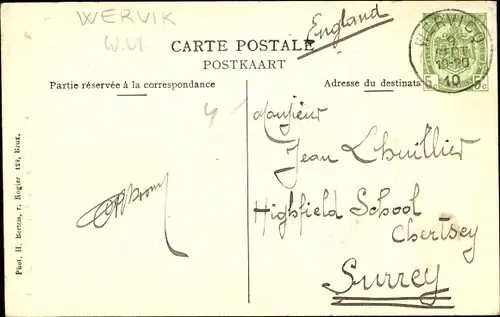 WERVIK
W.Vl.
England
CARTE POSTALE
POSTKAART
Partie réservée à la correspondance
Adresse du destinata
5c 5c
WERVICQ
10-20
10
4
Monsieur
Jean Lhuillier
Highfield School
Chertsey
Surrey
Phot. H. Bertels, r. Rogier 179, Brux.